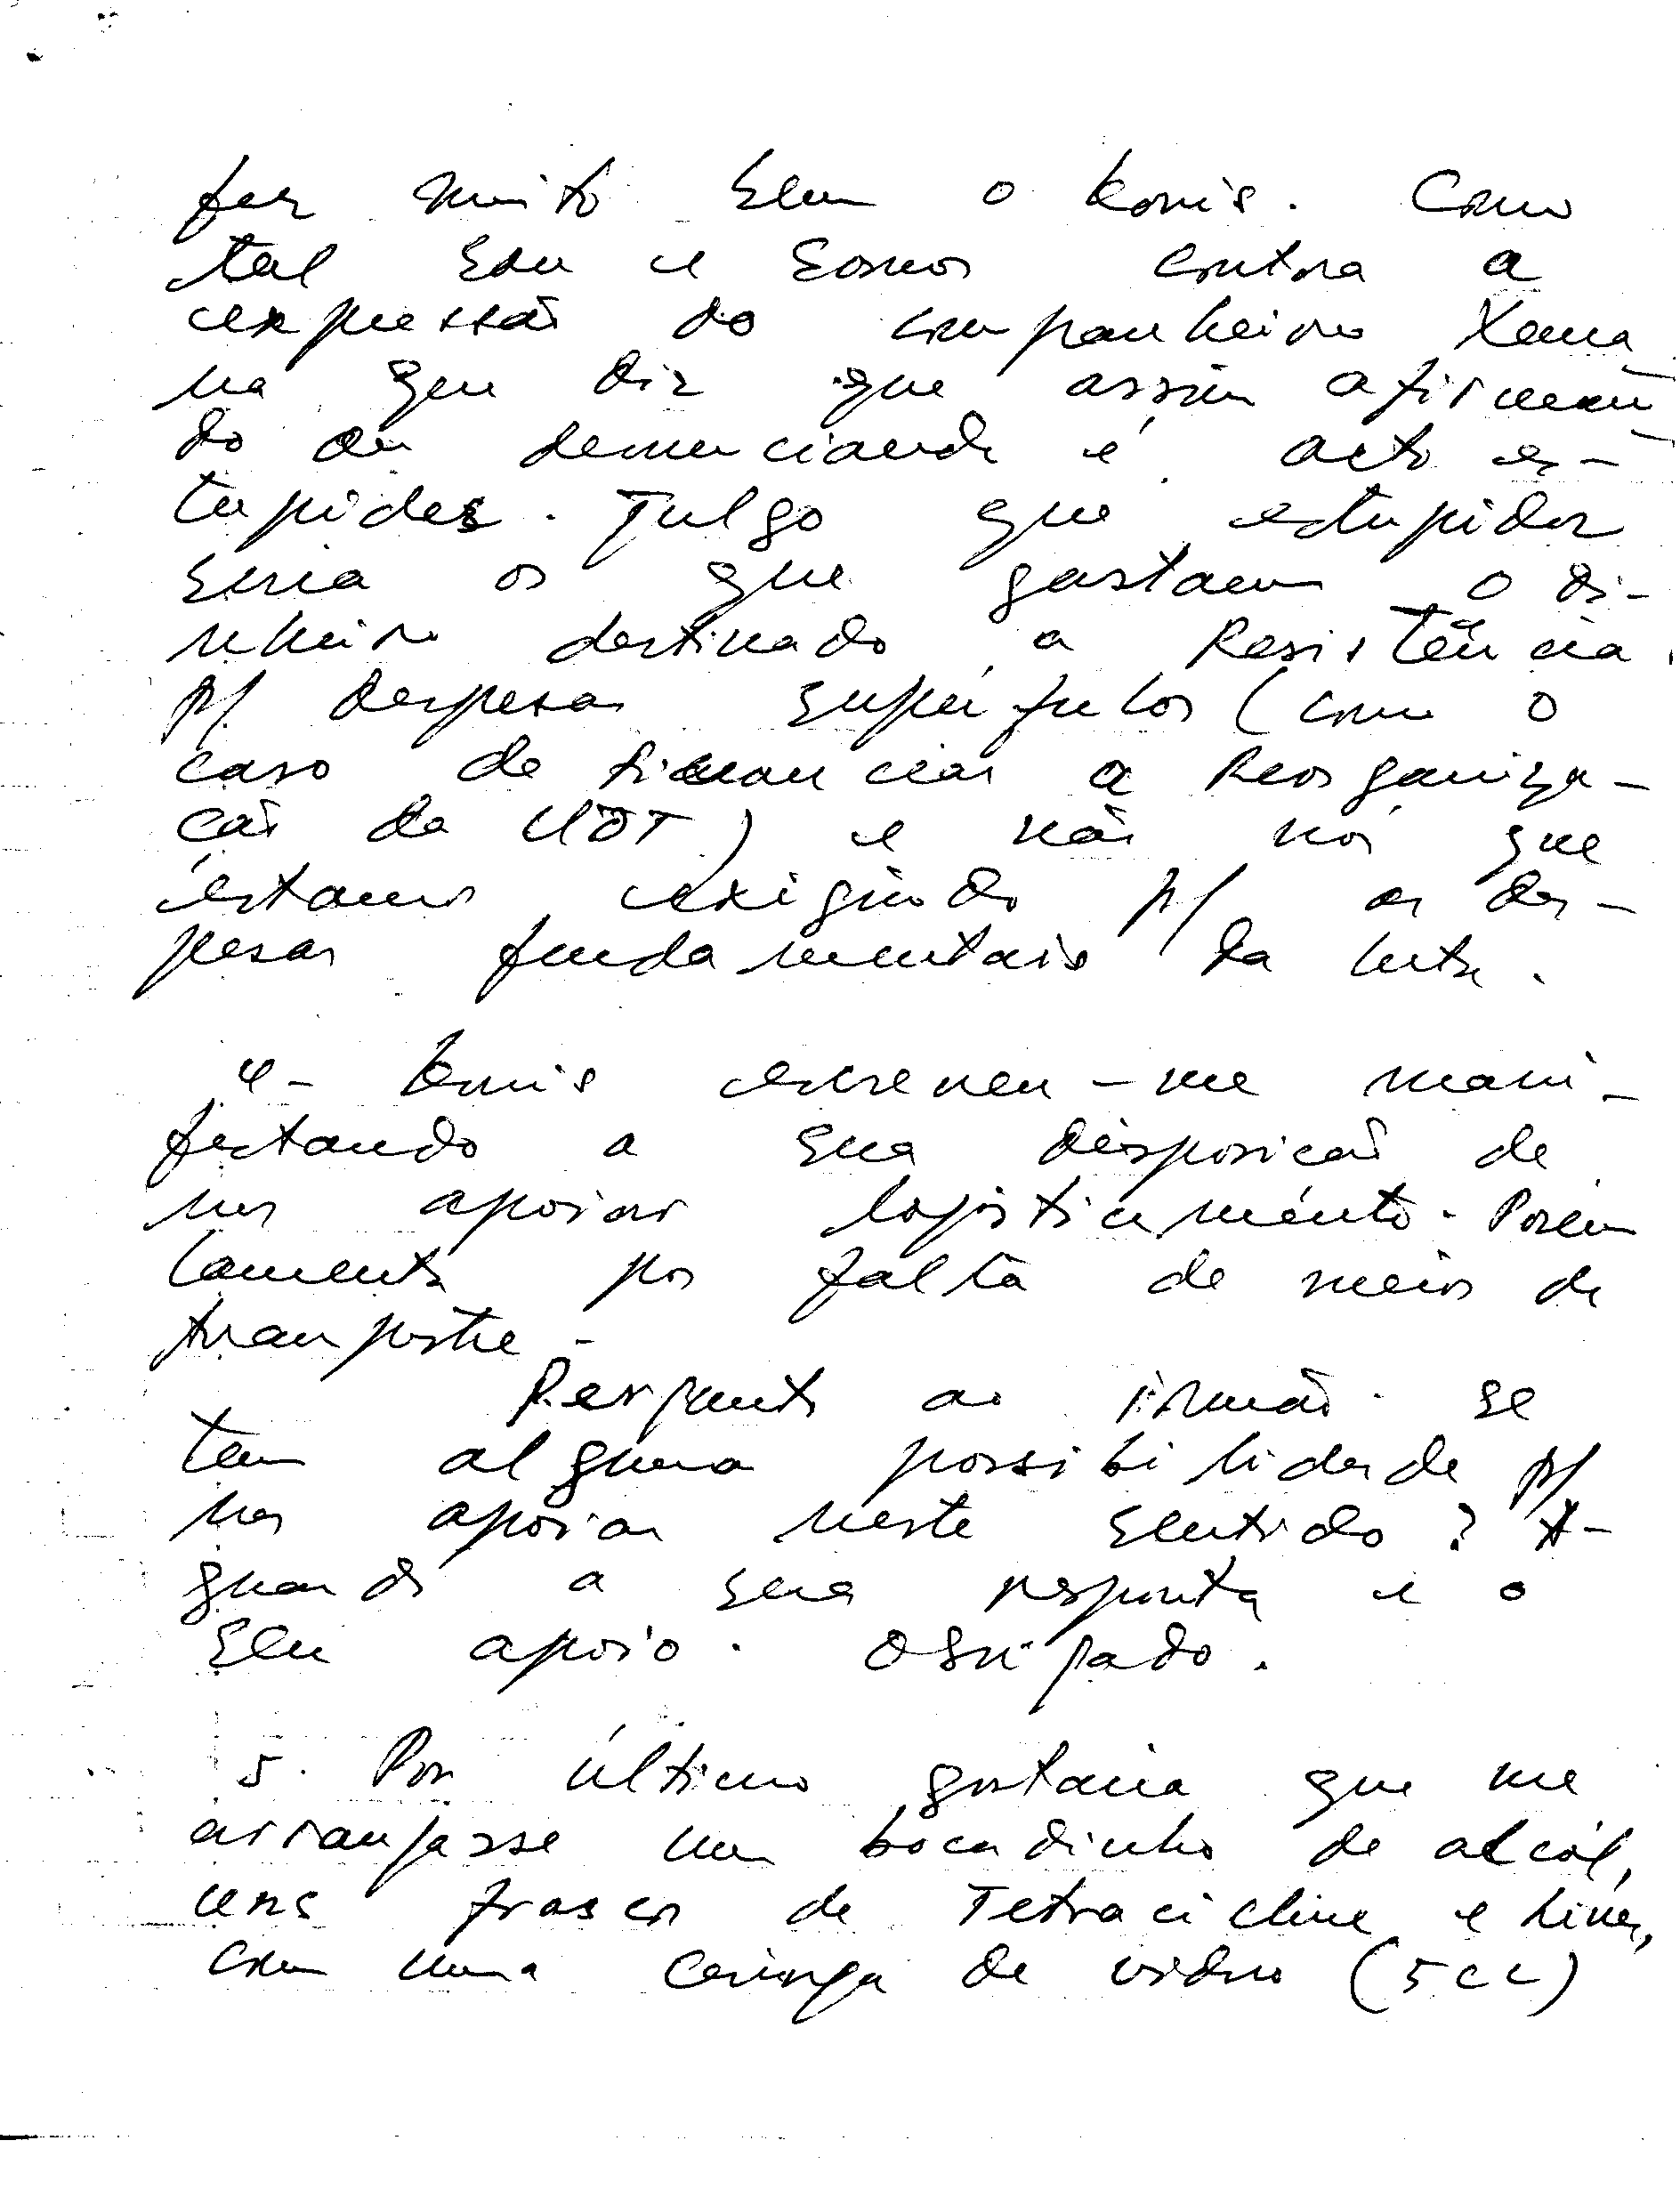 fez muito bem o Konis. Como
tal sou e somos contra a
expressão do companheiro Xana
na que diz que assim afirman
do ou denunciando é acto es-
tupidez. Julgo que estupidez
seria os que gastam o di-
nheiro destinado a Resistência
p/ despesas supérfulos (como o
caso de financiar a Reorganiza-
ção da UDT) e não nós que
estamos exigindo p/ as des-
pesas fundamentais da luta.
4- Konis escreveu-me mani-
festando a sua disposição de
nos apoiar logisticamento. Porém
lamenta por falta de meios de
transporte.
Pergunto ao irmão se
tem alguma possibilidade p/
nos apoiar neste sentido? A-
guardo a sua resposta e o
seu apoio. Obrigado.
5. Por último gostaria que me
arranjasse um bocadinho de alcóol,
uns frascos de Tetracicline e
com uma ceringa de vidro (5cc)